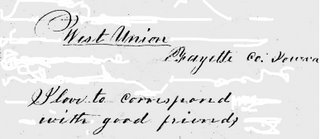 West Union
Fayette Co. Iowa
I love to correspond
with good friends